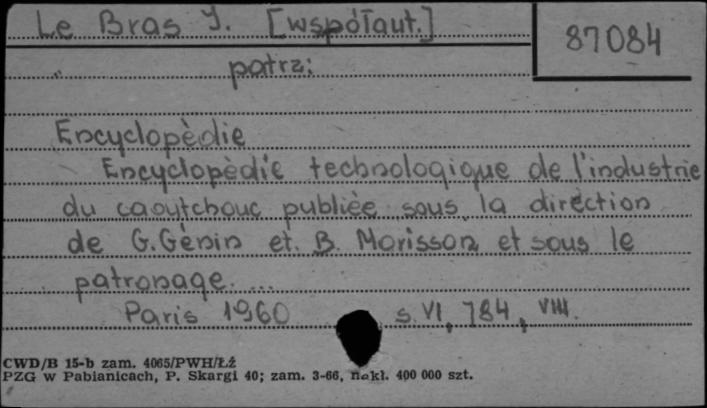 Le Bras J. [współaut.]
87084
patrz:
Encyclopèdie
Encyclopèdie technologique de l'industrie
du caoutchouc publièe sous la direction
de G. Gènin et. B. Morisson et sous le
patronage. ...
Paris 1960 s. VI, 784, VIII.
CWD/B 15-b zam. 4065/PWH/Łż
PZG w Pabianicach, P. Skargi 40; zam. 3-66, nakł. 400 000 szt.